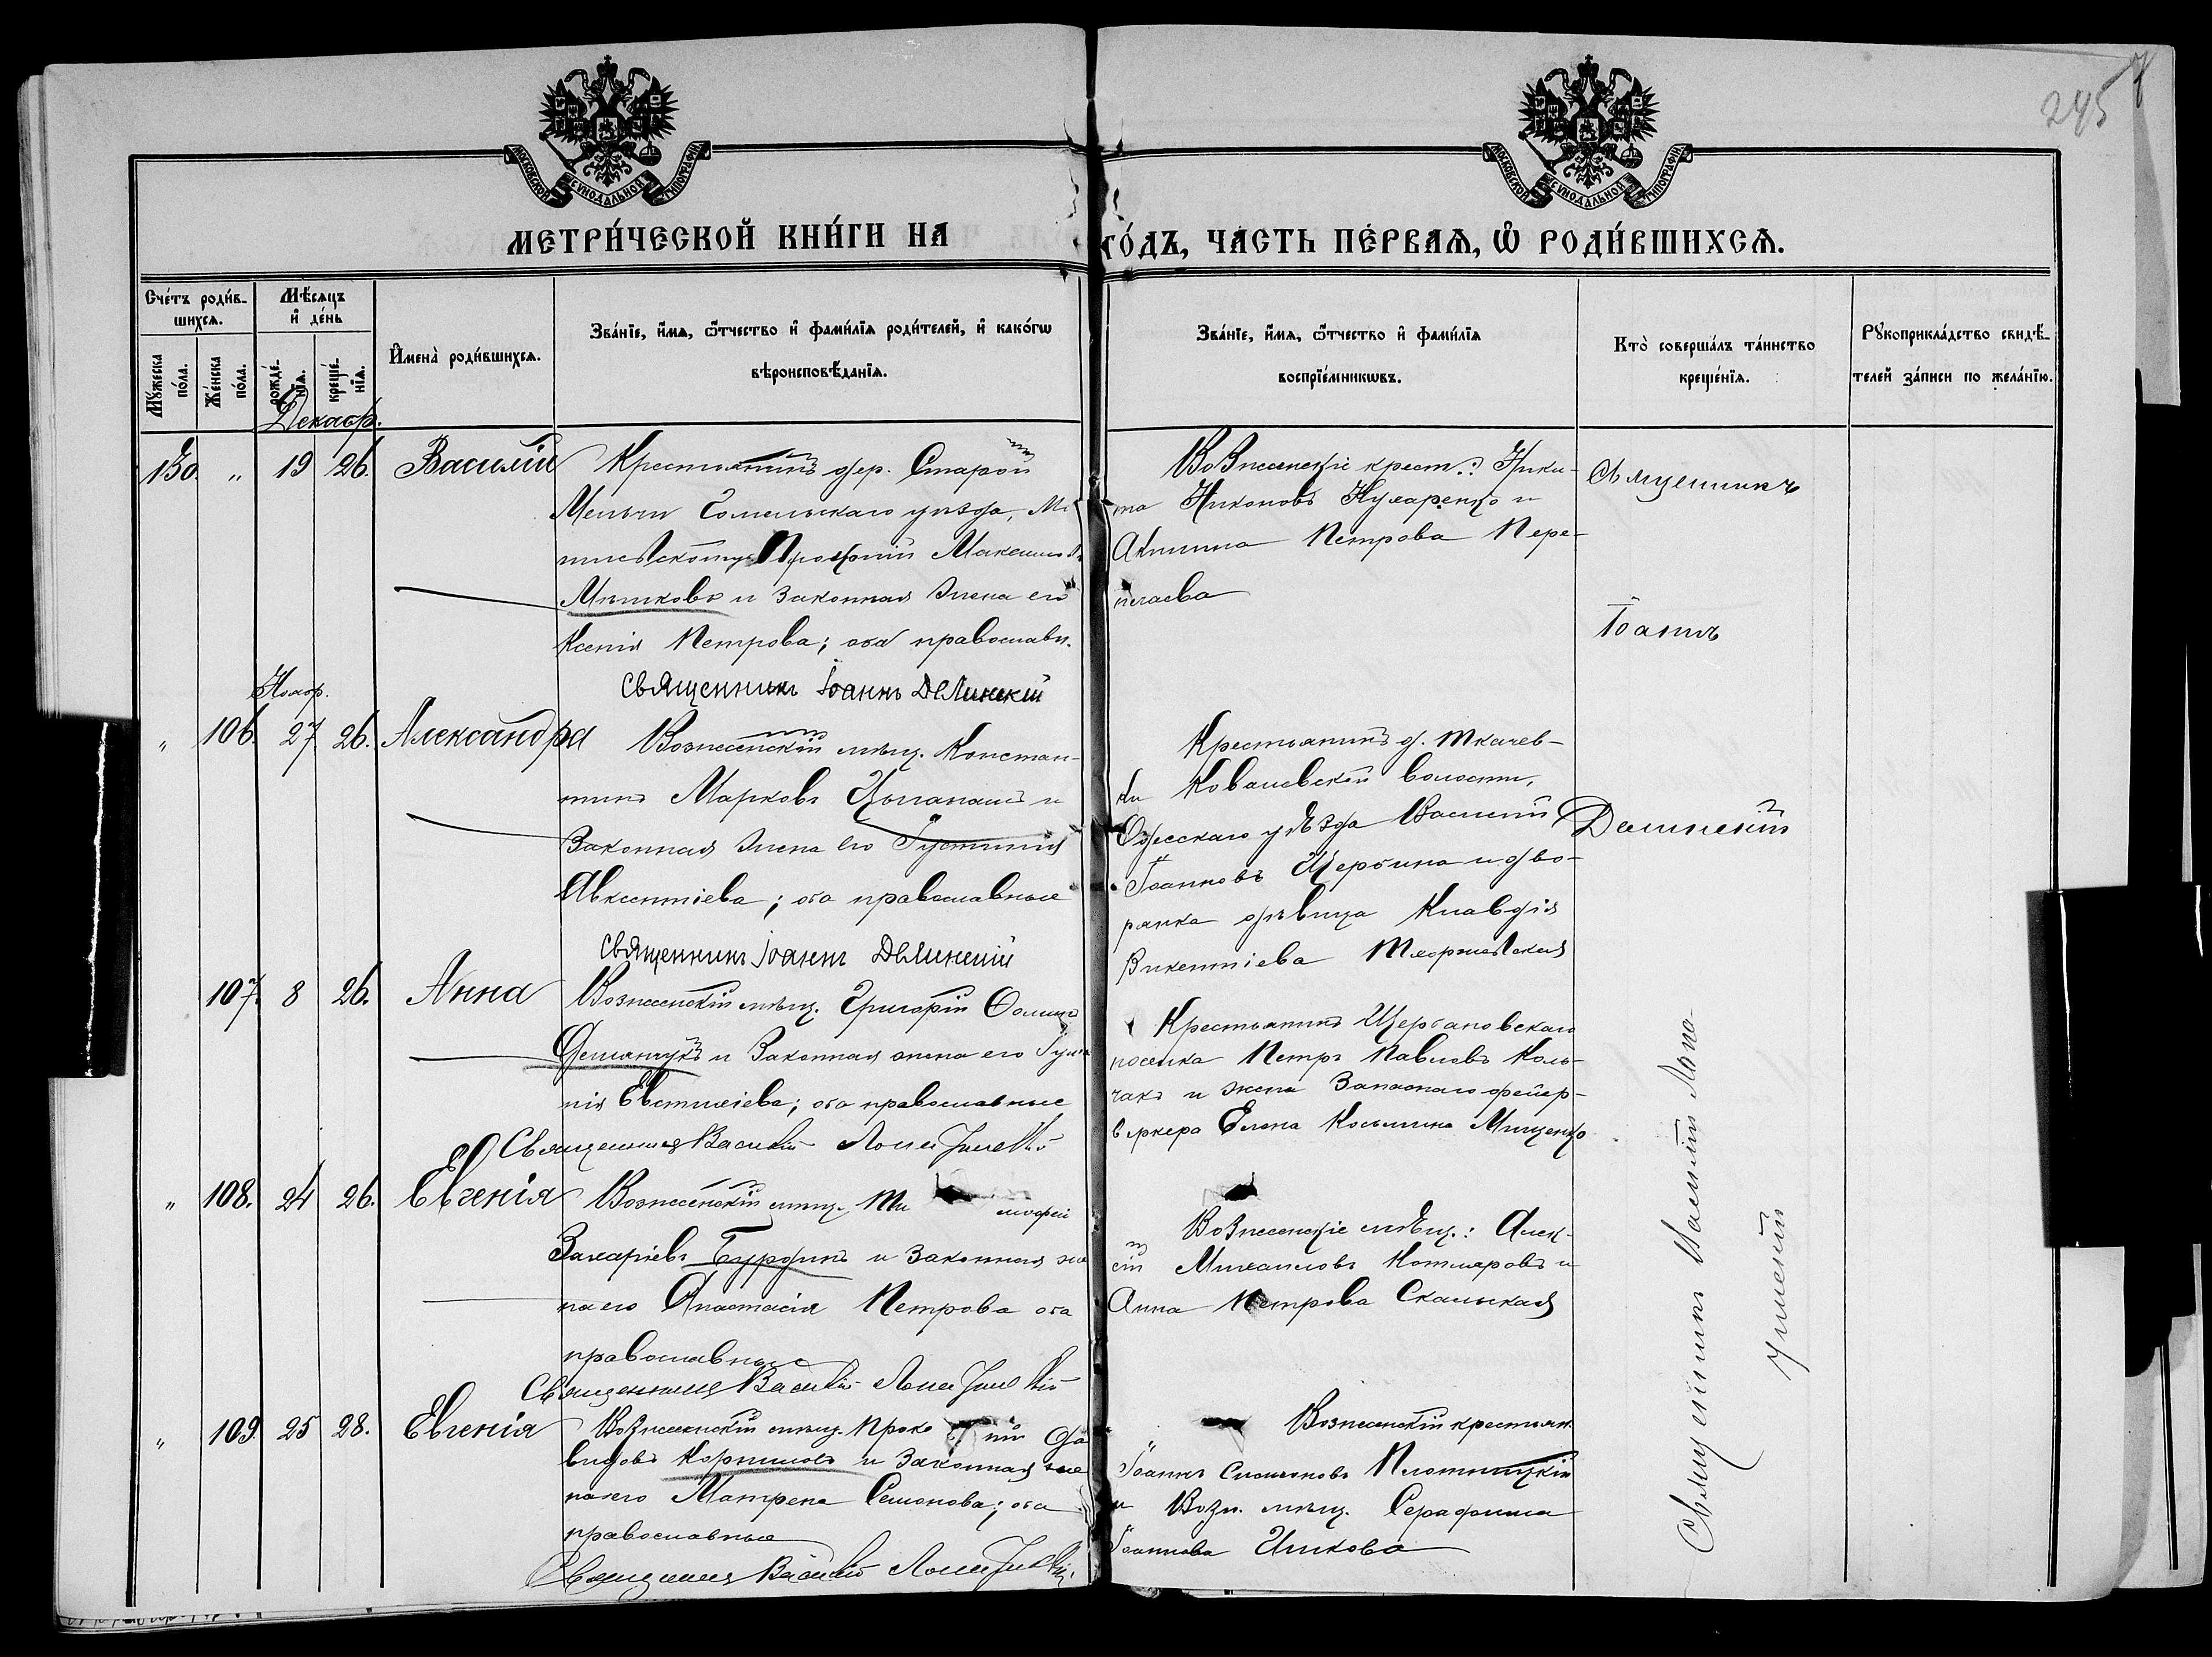 245
МОСКОВСКОЙ СѴНОДАЛЬНОЙ ТИПОГРАФІИ
МОСКОВСКОЙ СѴНОДАЛЬНОЙ ТИПОГРАФІИ
МЕТРИ́ЧЕСКОЙ КНИ́ГИ НА
ГО́ДЪ, ЧА́СТЬ ПЕ́РВАѦ, Ѽ РОДИ́ВШИХСѦ.
Сче́тъ роди́в-
шихсѧ.
Мꙋ́жеска
по́ла.
Же́нска
по́ла.
Мѣ́сѧцъ
и҆ де́нь
рожде́-
нїѧ.
креще́-
нїѧ.
И҆мена̀ роди́вшихсѧ.
Зва́нїе, и҆́мѧ, ѻ҆́тчество и҆ фами́лїѧ роди́телей, и҆ како́гѡ
вѣроисповѣ́данїѧ.
Зва́нїе, и҆́мѧ, ѻ҆́тчество и҆ фами́лїѧ
воспрїе́мникѡвъ.
Кто̀ соверша́лъ та́инство
креще́нїѧ.
Рꙋкоприкла́дство свидѣ́-
телей за́писи по жела́нїю.
Декабр.
130. " 19 26. Василій
Крестьянинъ дер. Старой
Мельчи Гомельскаго уѣзда,
Прокопій
Мышковъ и законная жена его
Ксенія Петрова; оба православн.
Священникъ Іоаннъ Делинскій
Вознесенскіе крест.: Ники-
та Никоновъ Кухаренко и
Акилина Петрова Пере-
Священникъ
Іоаннъ
Делинскій
Ноябр.
" 106. 27 26. Александра
Вознесенскій мѣщ. Констан-
тинъ Марковъ и
законная жена его Густинія
Авксентіева; оба православные
Священникъ Іоаннъ Делинскій
Крестьянинъ д. Ткачев-
ки Ковалевской волости,
Одесскаго уѣзда Василій
Іоанновъ Щербина и дво-
рянка дѣвица Клавдія
Викентіева
107. 8 26. Анна
Вознесенскій мѣщ. Григорій Ѳоминъ
Демянчукъ и законная жена его
нія Евстихіева; оба православные
Священникъ Василій
Крестьянинъ Щербановскаго
поселка Петръ Павловъ Коль-
чакъ и жена запаснаго фейер-
веркера Елена Косьмина Мищенко
" 108. 24 26. Евгенія
Вознесенскій мѣщ. Ти мофей
Захаріевъ Бурдинъ и законная же
на его Анастасія Петрова оба
православные
Священникъ Василій
Вознесенскіе мѣщ.: Алек-
сій Михаиловъ Котляровъ и
Анна Петрова Скальская
" 109. 25 28. Евгенія
Вознесенскій мѣщ. Проко пій Да
видовъ Корниловъ и законная же
на его Матрена Семонова; оба
православные
Священникъ Василій
Вознесенскій крестьян.
Іоаннъ Симоновъ Плотницкій
и Возн. мѣщ. Серафима
Іоаннова Илькова
Священникъ Василій